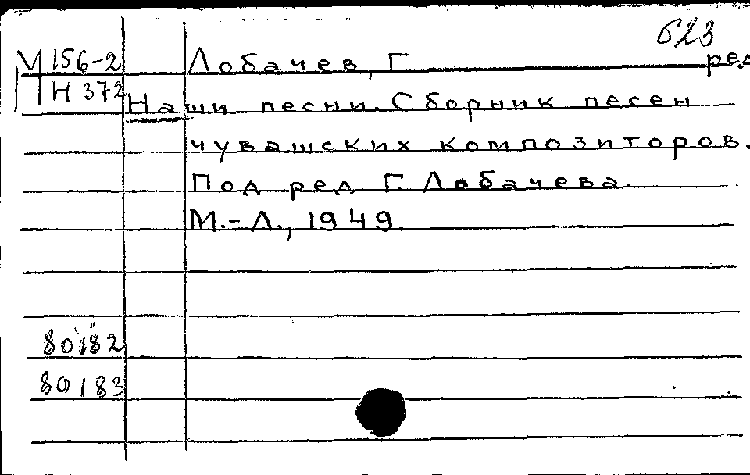 623
М 156-2 Лобачев, Г. ред
Н 372 Наши песни. Сборник песен
чувашских композиторов.
Под ред Г. Лобачева.
М.-Л., 1949.
80182
80183